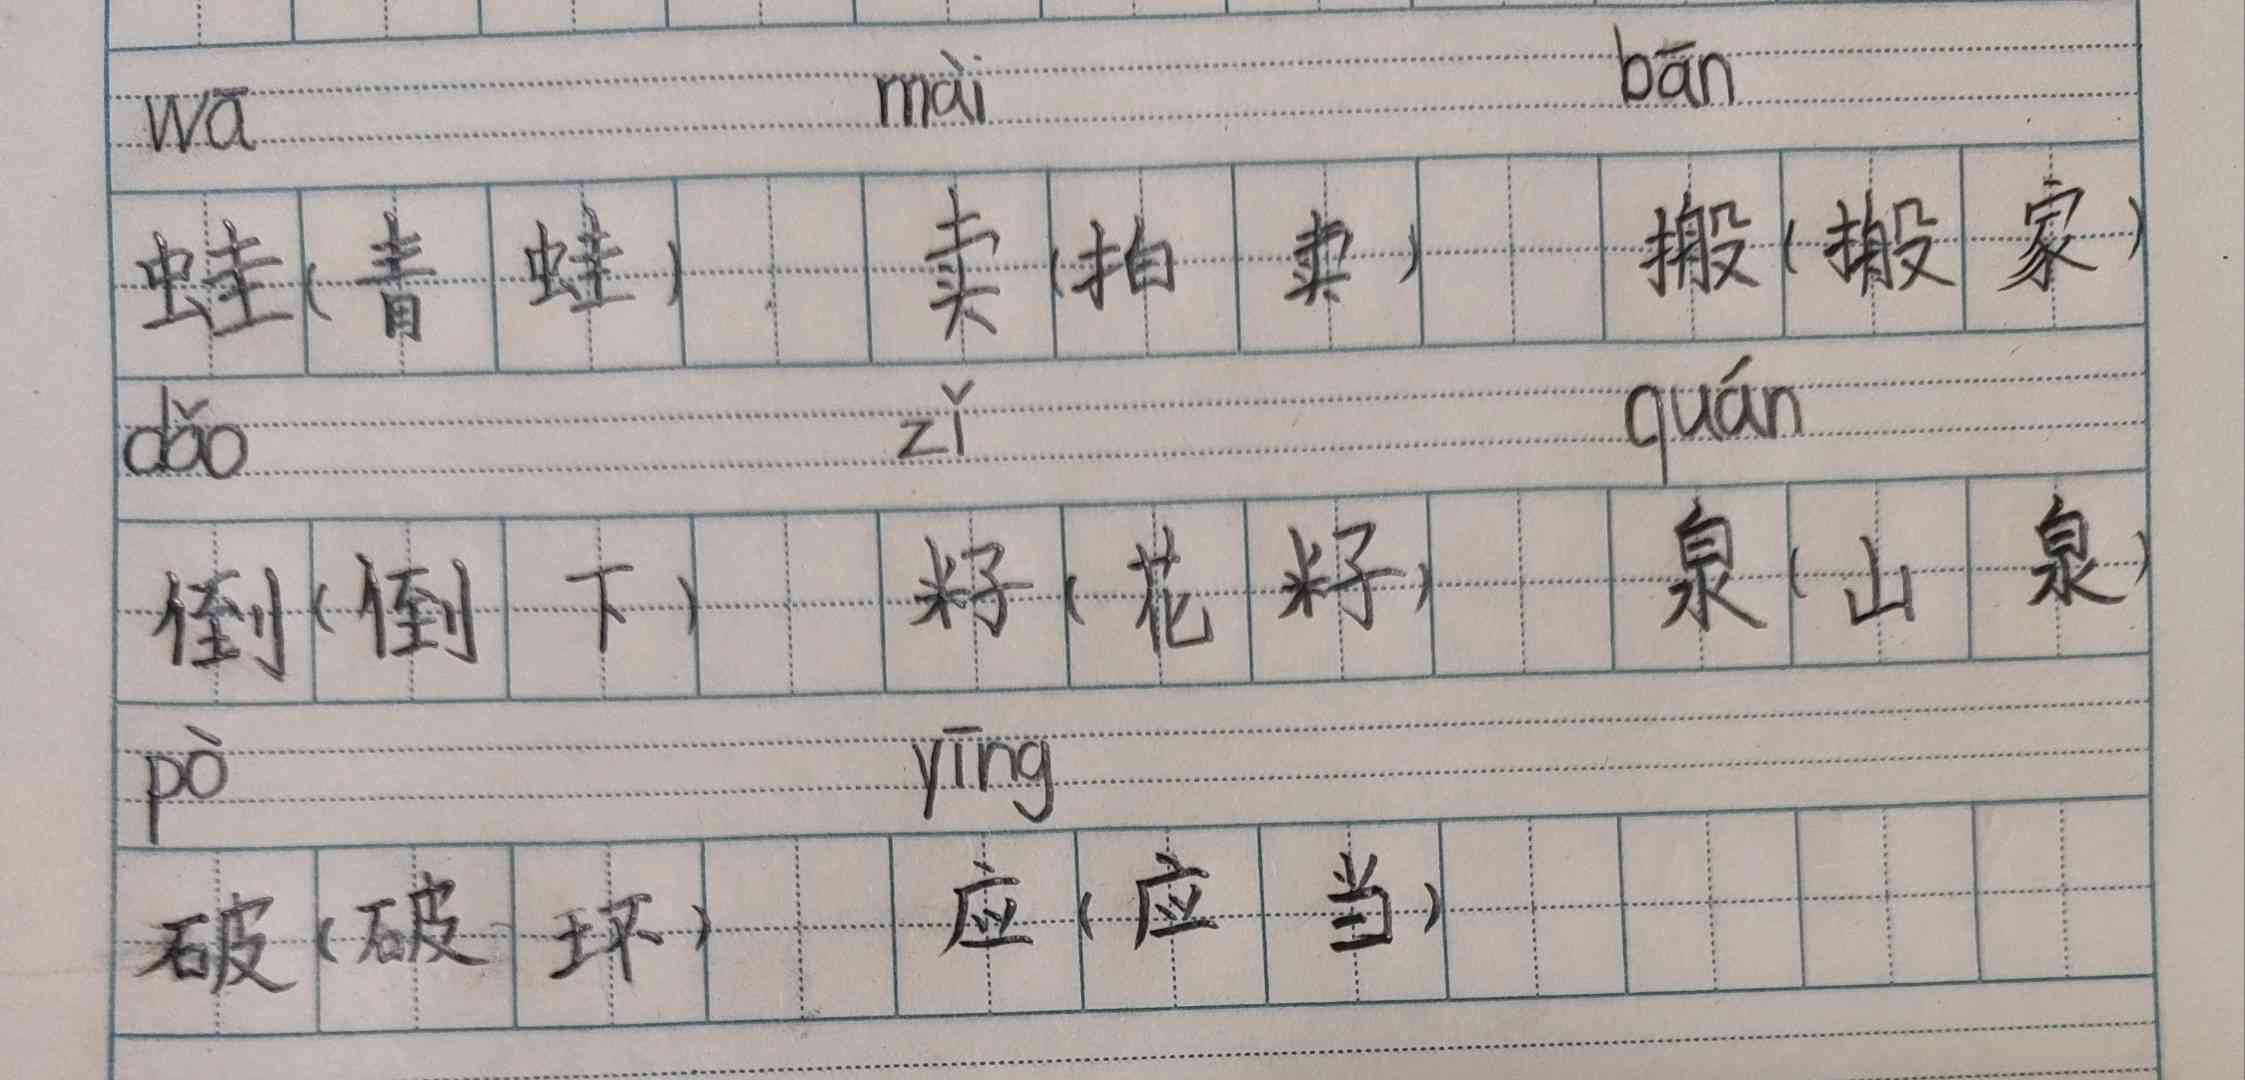 wā mài bān
蛙(青蛙) 卖(拍卖) 搬(搬家)
dǎo zǐ quán
倒(倒下) 籽(花籽) 泉(山泉)
pò yīng
破(破坏) 应(应当)